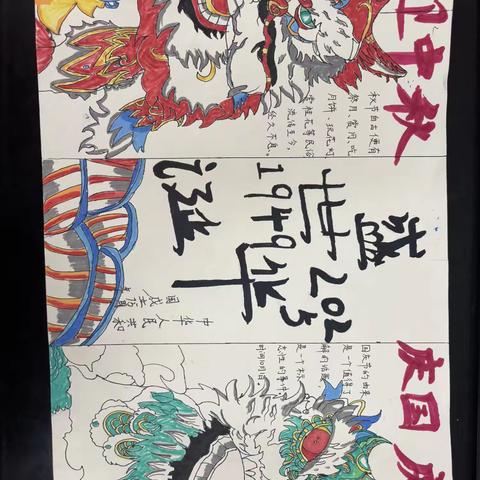 迎中秋
秋节自古便有
祭月、赏月、吃
月饼、玩花灯
赏桂花等民俗
流传至今,
经久不息。
盛世华诞
1949
2025
中华人民共和
国成立
庆国
国庆节的由来
是一个值得了
解的话题
是一个标
志性的事件
时间10月1日